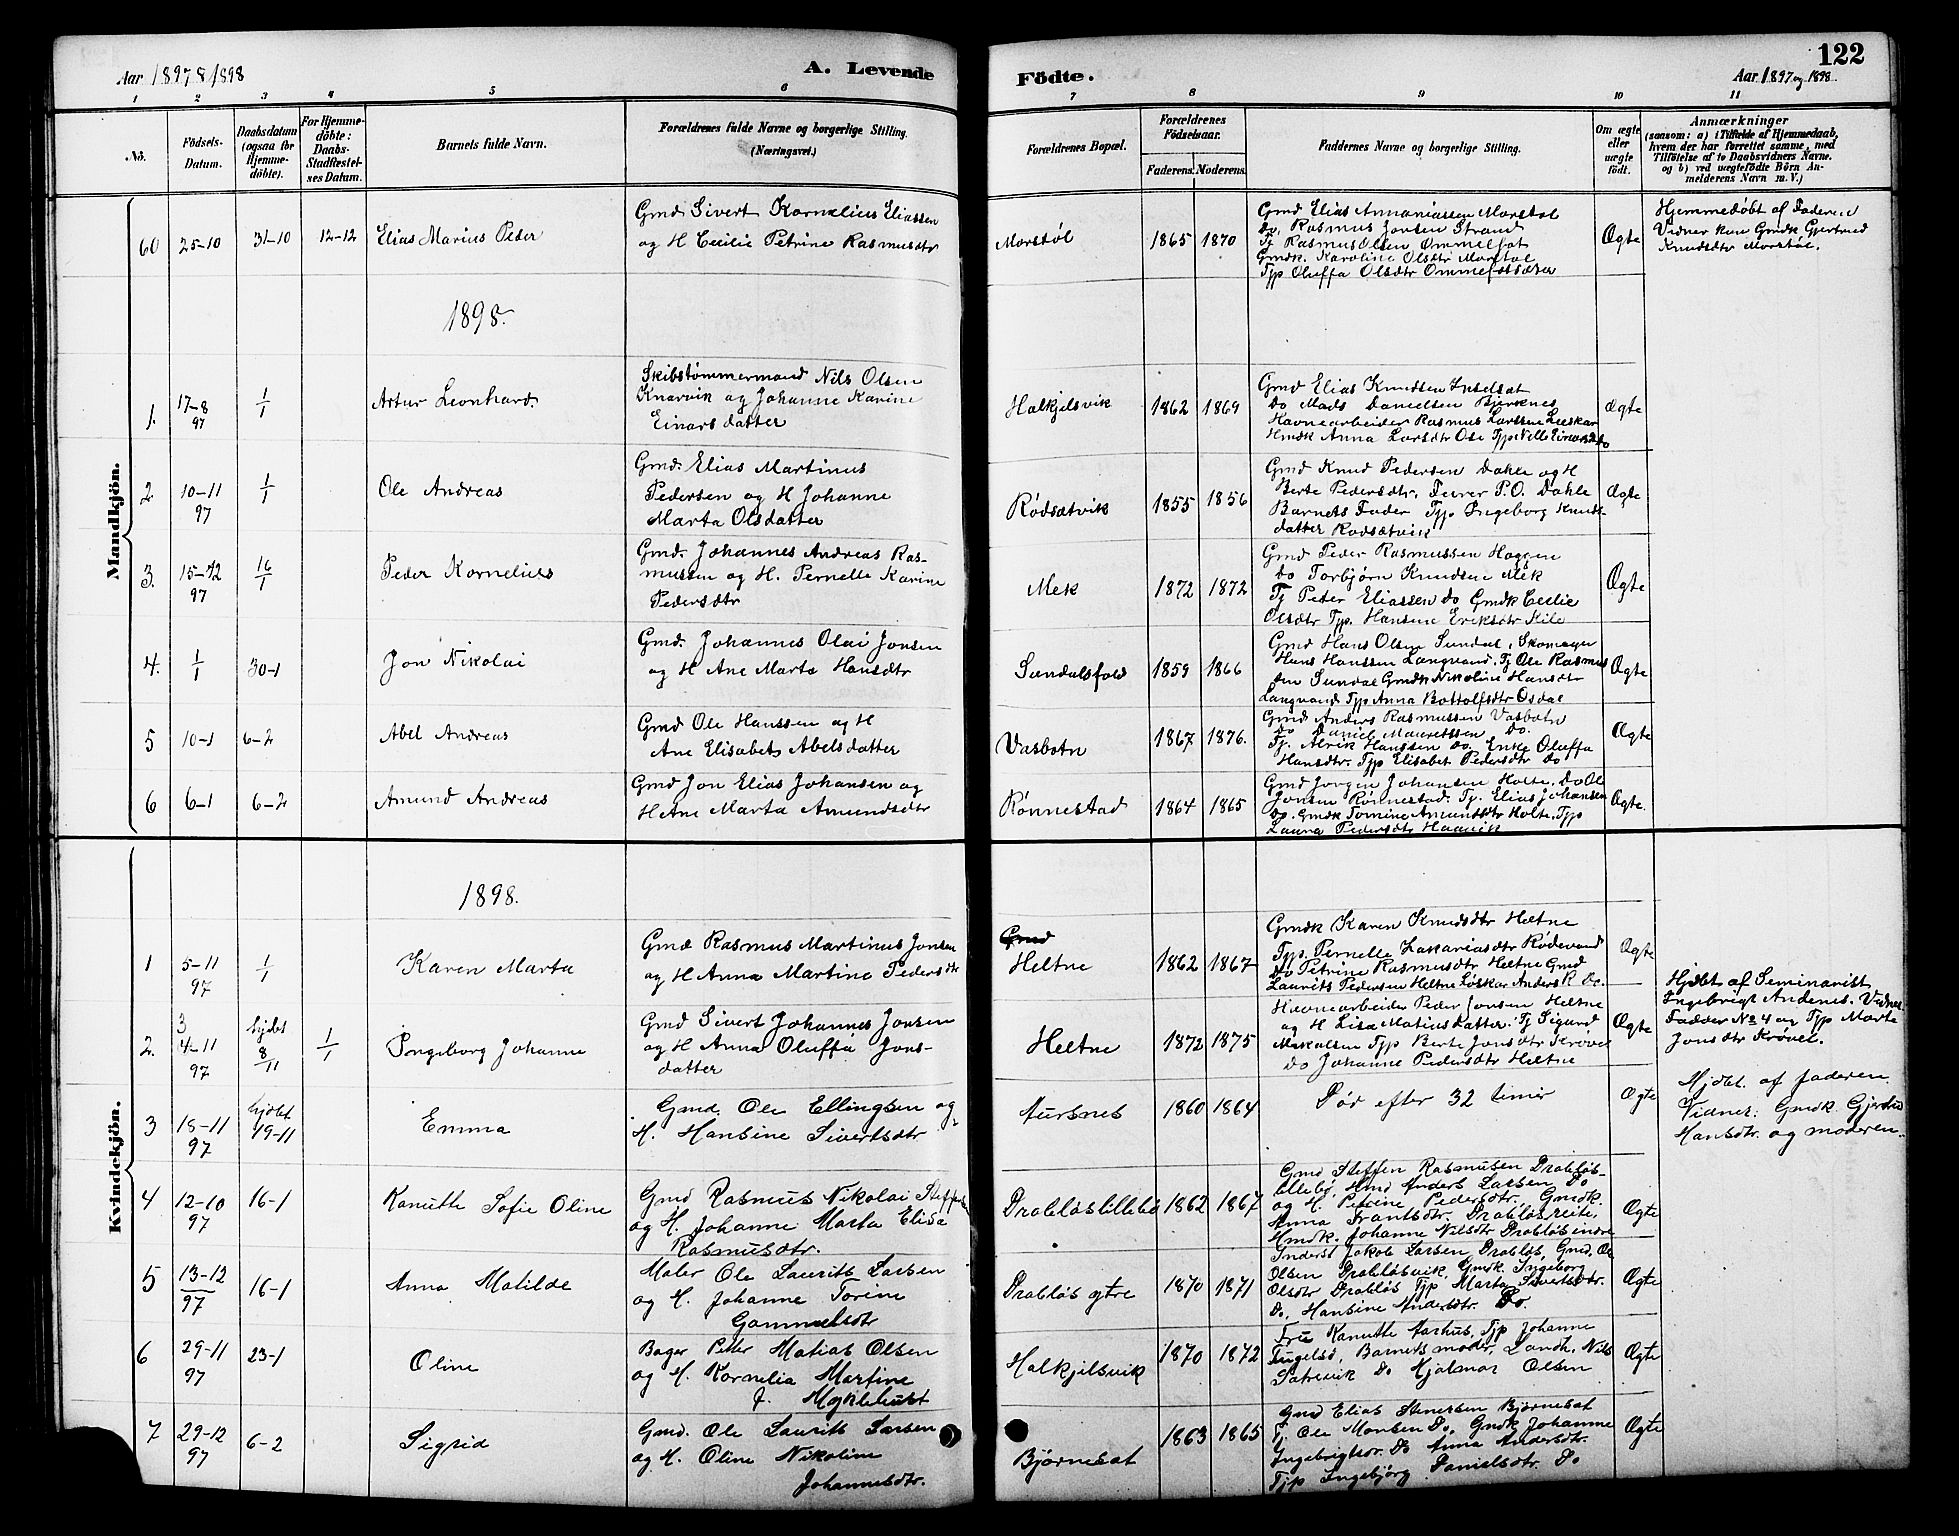 Aar 1897 & 1898
A. Levende
Födte.
122
Aar 1897 og 1898.
1 2 3 4 5 6 7 8 9 10 11
No.
Födsels-Datum.
Daabsdatum (ogsaa for Hjemme-döbte).
For Hjemme-döbte: Daabs-Stadfæstel-ses Datum.
Barnets fulde Navn.
Forældrenes fulde Navne og borgerlige Stilling.
(Næringsvei.)
Forældrenes Bopæl.
Forældrenes Födselsaar.
Faderens. Moderens.
Faddernes Navne og borgerlige Stilling.
Om ægte eller uægte födt.
Anmærkninger
(saasom: a) i Tilfælde af Hjemmedaab,
hvem der har forrettet samme, med
Tilföielse af to Daabsvidners Navne.
og b) ved uægtefödte Börn An-
melderens Navn m. V.)
Mandkjön.
60 25-10 31-10 12-12 Elias Marius Peder
Gmd Sivert Kornelius Eliassen
og H Cecilie Petrine Rasmusdtr
Morstøl 1865 1870
Gmd Elias Annaniassen Morstøl
do. Rasmus Jonsen Strand
Tj Rasmus Olsen Ommelfot
Gmdk. Karoline Olsdtr Morstøl
Tjp Oluffa Olsdtr
Ægte
Hjemmedøbt af Faderen
Vidner kun Gmdk Gjertrud
Knudsdtr Morstøl.
1898.
1. 17-8 97 1/1 Artur Leonhard.
Skibstømmermand Nils Olsen
Knarvik og Johanne Karine
Einarsdatter
Halkjelsvik 1862 1869
Gmd Elias Knudsen
do Mads Danielsen Bjerknes
Havnearbeider Rasmus Larssen
Hmdk Anna Larsdtr Ose Tjp
ægte
2 10-11 97 1/1 Ole Andreas
Gmd. Elias Martinus
Pedersen og H Johanne
Marta Olsdatter
Rødsætvik 1855 1856
Gmd Knud Pedersen Dahle og H
Berte Pedersdtr, P.O. Dahle
Barnets Fader Tjp Ingeborg Knuds-
datter Rødsætvik
Ægte
3. 15-12 97 16/1 Peder Kornelius
Gmd. Johannes Andreas Ras-
mussen og H. Pernelle Karine
Pedersdtr
Mek 1872 1872
Gmd Peder Rasmussen Haggen
do Torbjørn Knudsen Mek
Tj Peter Eliassen do Gmdk Cecilie
Olsdtr Tjp. Hansine Eriksdtr Kile
Ægte
4. 1/1 30-1 Jon Nikolai
Gmd. Johannes Olai Jonsen
og H Ane Marta Hansdtr
Sundalsfold 1859 1866
Gmd Hans Olsen Sundal, Skomager
Hans Hanssen Langvand. Tj Ole Rasmus
sen Sundal Gmdk Nikoline Hansdtr
Langvand Tjp Anna Bottolfsdtr Osdal
Ægte
5 10-1 6-2 Abel Andreas
Gmd Ole Hanssen og H
Ane Elisabet Abelsdatter
Vasbotn 1867 1876.
Gmd Anders Rasmussen Vasbotn
do Daniel Mauretssen do.
Tj. Alrik Hanssen do. Enke Oluffa
Hansdtr. Tjp Elisabet Pedersdtr do
Ægte
6 6-1 6-2 Amund Andreas
Gmd Jon Elias Johansen og
H Ane Marta Amundsdtr
Rønnestad 1864 1865
Gmd Jørgen Johansen Holte. Do Ole
Jonsen Rønnestad. Tj. Elias Johansen
Do. Gmdk Tomine Amundsdtr Holte. Tjp
Laura Pedersdtr Haavik
Ægte.
Kvindekjön.
1898.
1 5-11 97 1/1 Karen Marta
Gmd Rasmus Martinus Jonsen
og H Anna Martine Pedersdtr
Gmd
Heltne 1862 1867
Gmdk Karen Knudsdtr Heltne
Tjp. Pernelle Zakariasdtr Rødevand
Do Petrine Rasmusdtr Heltne Gmd
Laurits Pedersen Heltne Løskar Anders R do.
Ægte
2. 3 4-11 97 hjdbt 8/11 1/1 Ingeborg Johanne
Gmd Sivert Johannes Jonsen
og H Anna Oluffa Jons-
datter
Heltne 1872 1875
Havnearbeider Peder Jonsen Heltne
og H Lisa Matiusdatter. Tj Sigurd
Tjp Berte Jonsdtr Krøvel
do Johanne Pedersdtr Heltne
Ægte
Hjdbt af Seminarist
Ingebrigt Andenes. Vidner
Fadder No 4 og Tjp Marte
Jonsdtr Krøvel.
3 18-11 97 hjdbt 19-11 Emma
Gmd. Ole Ellingsen og
H. Hansine Sivertsdtr
Aursnes 1860 1864
Død efter 32 timer
Ægte
Hjdbt. af faderen.
Vidner: Gmdk. Gjertrud
Hansdtr. og moderen.
4 12-10 97 16-1 Kanutte Sofie Oline
Gmd Rasmus Nikolai Steffens
og H. Johanne Marta Elisa
Rasmusdtr.
Drabløslillebø 1862 1867
Gmd Steffen Rasmusen Drabløs-
lillebø, Hmd Anders Larsen Do
og H. Petrine Pedersdtr. Gmdk.
Anna Frantsdtr. Drabløsreite,
Hmdk. Johanne Nilsdtr Drabløsindre
Ægte
5 13-12 97 16-1 Anna Matilde
Maler Ole Laurits Larsen
og H. Johanne Torine
Gammelsdtr
Drabløs ytre 1870 1871
Inderst Jakob Larsen Drabløs, Gmd. Ole
Olsen Drabløsvik, Gmdk. Ingeborg
Olsdtr Drabløs Tjp Marta Sivertsdtr.
Do, Hansine Andersdtr. Do.
Ægte
6 29-11 97 23-1 Oline
Bager Petter Matias Olsen
og H. Kornelia Martine
f. Myklebust
Halkjelsvik 1870 1872
Fru Kanutte Aarhus, Tjp Johanne
Fugelsø, Barnets moder, Landh. Nils
Do Hjalmar Olsen
Ægte
7 29-12 97 6-2 Sigrid
Gmd. Ole Laurits Larsen
og H. Oline Nikoline
Johannesdtr.
Bjørnesat 1863 1865
Gmd Elias Stenersen Bjørnesat
Tj. Ole Monsen Do, Gmdk Johanne
Ingebrigtsdr. Do Anna Andersdtr.
Tjp Ingebjørg Danielsdtr. Do
Ægte